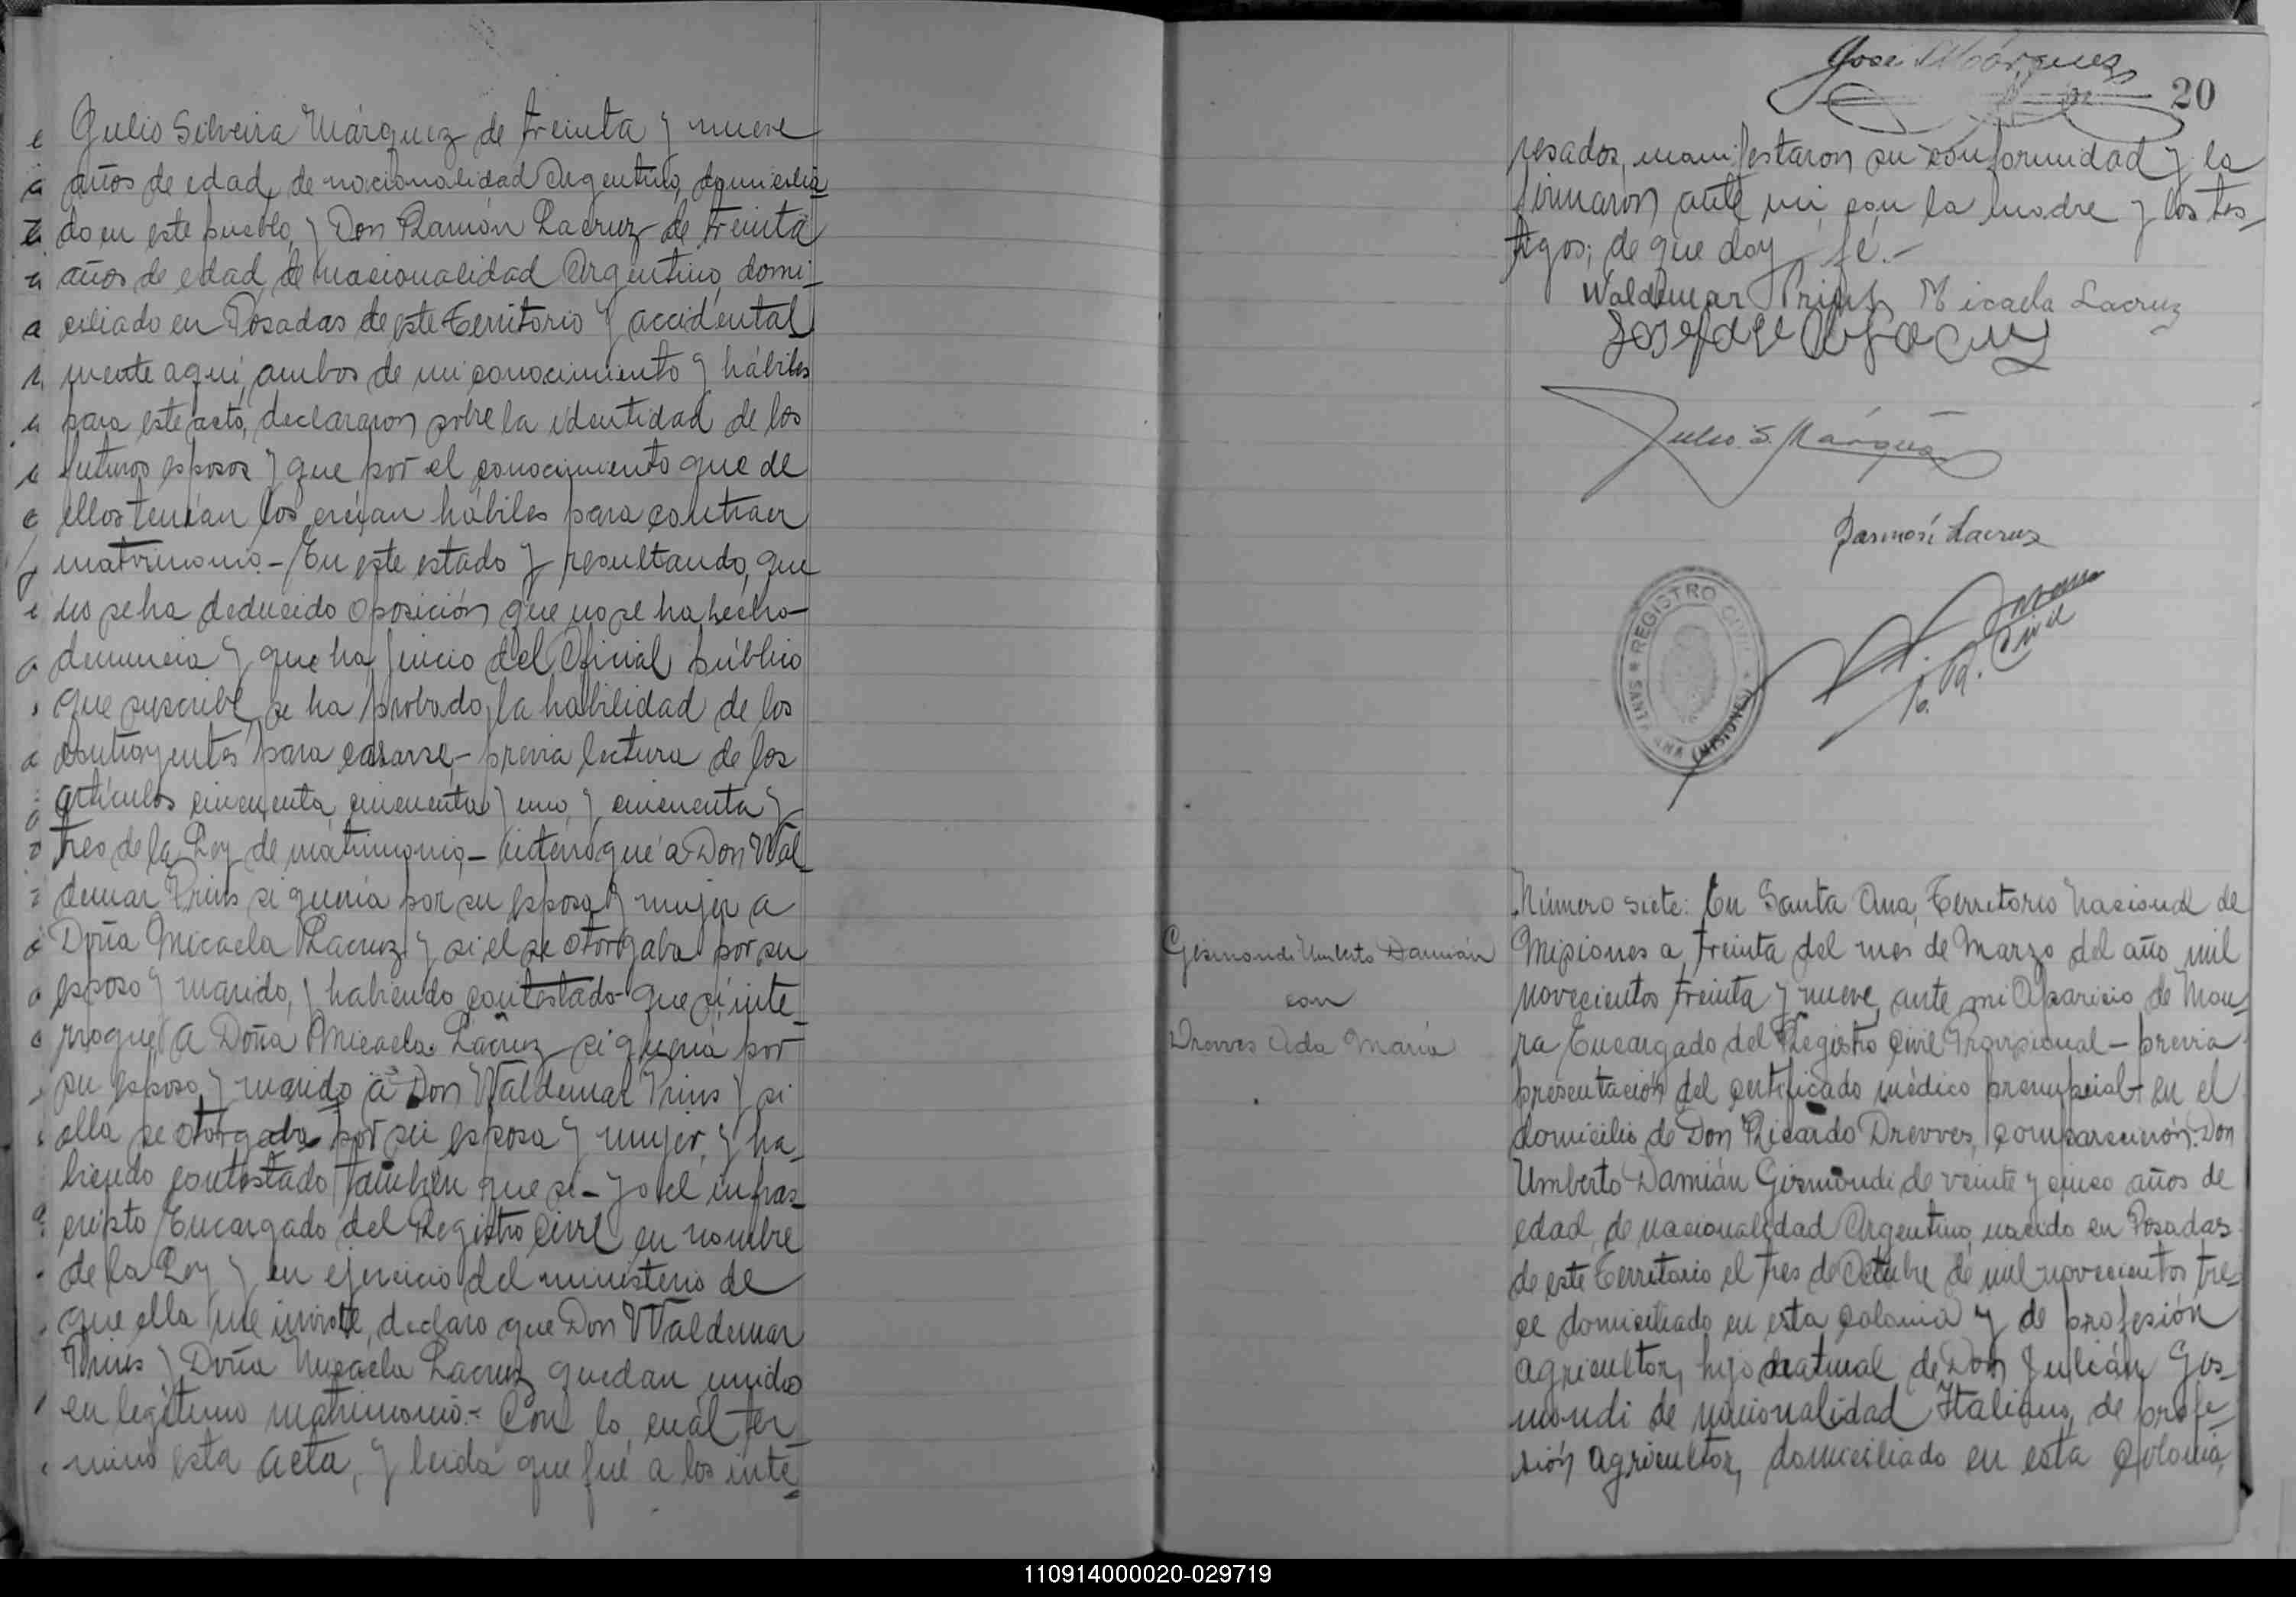 Julio Silveira Márquez de treinta y nueve
años de edad, de nacionalidad Argentino, domicilia
do en este pueblo, y Don Ramón Lacruz de treinta
años de edad, de nacionalidad Argentino, domi-
ciliado en Posadas de este Territorio y accidental
mente aquí, ambos de mi conocimiento y hábiles
para este acto, declararon sobre la identidad de los
futuros esposos y que por el conocimiento que de
ellos tenían los creían hábiles para contraer
matrimonio.- En este estado y resultando, que
no se ha deducido oposición que no se ha hecho
denuncia y que ha juicio del Oficial público
que suscribe, se ha probado, la habilidad de los
contrayentes para casarse,- previa lectura de los
artículos cincuenta, cincuenta y uno, y cincuenta y
tres de la Ley de matrimonio,- interrogué a Don Wal
demar Prins si quería por su esposa y mujer a
Doña Micaela Lacruz y si el se otorgaba por su
esposo y marido, y habiendo contestado que si, inte-
rrogué a Doña Micaela Lacruz si quería por
su esposo y marido a Don Waldemar Prins y si
ella se otorgaba por su esposa y mujer, y ha-
biendo contestado también que si - yo el infras-
cripto Encargado del Registro Civil en nombre
de la Ley y en ejercicio del ministerio de
que ella me inviste, declaro que Don Waldemar
Prins y Doña Micaela Lacruz quedan unidos
en legítimo matrimonio.- Con lo cuál ter
minó esta acta, y leída que fué a los inte-
José Márquez
20
resados, manifestaron su conformidad y la
firmaron ante mi, con la madre y los tes-
tigos; de que doy fé.-
Waldemar Prins Micaela Lacruz
Julio S. Márquez
Ramón Lacruz
REGISTRO CIVIL
SANTA ANA (MISIONES)
Número siete: En Santa Ana, Territorio Nacional de
Gismondi Umberto Damián
con
Drevves Ada María
Misiones a treinta del mes de Marzo del año mil
novecientos treinta y nueve, ante mi Aparicio de Mou-
ra Encargado del Registro Civil Provisional - previa
presentación del certificado médico prenupcial - en el
domicilio de Don Ricardo Drevves, comparecieron: Don
Umberto Damián Gismondi de veinte y cinco años de
edad, de nacionalidad Argentino, nacido en Posadas
de este Territorio el tres de Octubre de mil novecientos tre-
ce domiciliado en esta colonia y de profesión
agricultor, hijo natural de Don Julián Gis-
mondi de nacionalidad Italiano, de profe-
sión agricultor, domiciliado en esta Colonia,
110914000020-029719